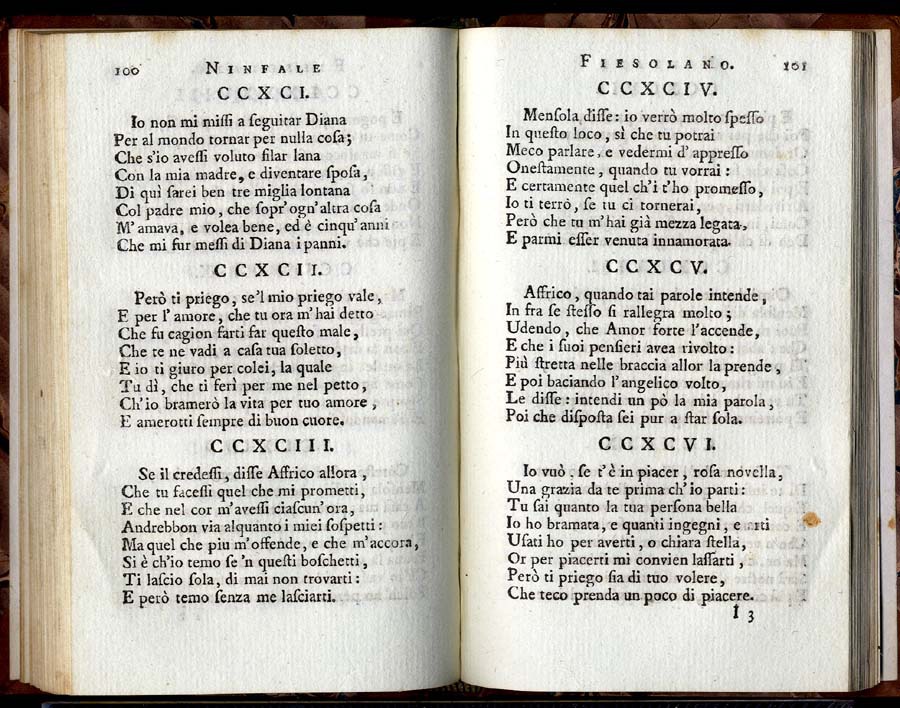 100 NINFALE
CCXCI.
Io non mi miſſi a ſeguitar Diana
Per al mondo tornar per nulla coſa;
Che s'io aveſſi voluto filar lana
Con la mia madre, e diventare ſpoſa,
Di quì ſarei ben tre miglia lontana
Col padre mio, che ſopr'ogn'altra coſa
M'amava, e volea bene, ed è cinqu'anni
Che mi fur meſſi di Diana i panni.
CCXCII.
Però ti priego, se'l mio priego vale,
E per l'amore, che tu ora m'hai detto
Che fu cagion farti far queſto male,
Che te ne vadi a caſa tua ſoletto,
E io ti giuro per colei, la quale
Tu dì, che ti ferì per me nel petto,
Ch'io bramerò la vita per tuo amore,
E amerotti ſempre di buon cuore.
CCXCIII.
Se il credeſſi, diſſe Affrico allora,
Che tu faceſſi quel che mi prometti,
E che nel cor m'aveſſi ciaſcun'ora,
Andrebbon via alquanto i miei ſoſpetti:
Ma quel che piu m'offende, e che m'accora,
Si è ch'io temo ſe 'n queſti boſchetti,
Ti laſcio ſola, di mai non trovarti:
E però temo ſenza me laſciarti.
FIESOLANO. 101
CCXCIV.
Menſola diſſe: io verrò molto ſpeſſo
In queſto loco, sì che tu potrai
Meco parlare, e vedermi d'appreſſo
Oneſtamente, quando tu vorrai:
E certamente quel ch'i t'ho promeſſo,
Io ti terrò, ſe tu ci tornerai,
Però che tu m'hai già mezza legata,
E parmi eſſer venuta innamorata.
CCXCV.
Affrico, quando tai parole intende,
In fra ſe ſteſſo ſi rallegra molto;
Udendo, che Amor forte l'accende,
E che i ſuoi penſieri avea rivolto:
Più ſtretta nelle braccia allor la prende,
E poi baciando l'angelico volto,
Le diſſe: intendi un pò la mia parola,
Poi che diſpoſta ſei pur a ſtar ſola.
CCXCVI.
Io vuò, ſe t'è in piacer, roſa novella,
Una grazia da te prima ch'io parti:
Tu ſai quanto la tua perſona bella
Io ho bramata, e quanti ingegni, e arti
Uſati ho per averti, o chiara ſtella,
Or per piacerti mi convien laſſarti,
Però ti priego ſia di tuo volere,
Che teco prenda un poco di piacere.
I 3